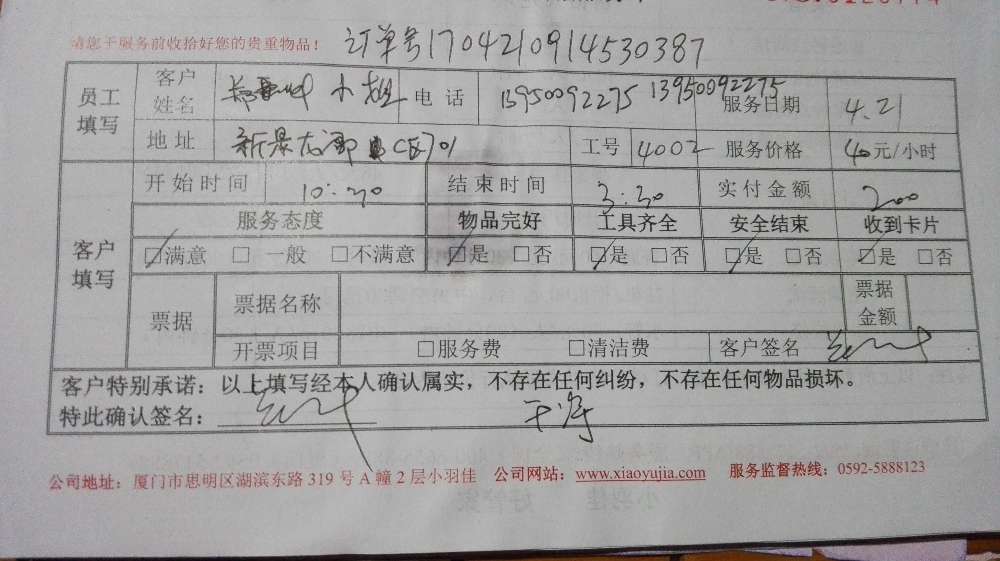 请您于服务前收拾好您的贵重物品! 订单号1704210914530387
员工填写 客户姓名 小姐 电话 13950092275 13950092275 服务日期 4.21
地址 新景龙郡 C区701 工号 4002 服务价格 40元/小时
开始时间 10:30 结束时间 3:30 实付金额 200
客户填写 服务态度 物品完好 工具齐全 安全结束 收到卡片
☑满意 □一般 □不满意 ☑是 □否 ☑是 □否 ☑是 □否 ☑是 □否
票据 票据名称 票据金额
开票项目 □服务费 □清洁费 客户签名
客户特别承诺:以上填写经本人确认属实,不存在任何纠纷,不存在任何物品损坏。
特此确认签名:
公司地址:厦门市思明区湖滨东路319号A幢2层小羽佳 公司网站:www.xiaoyujia.com 服务监督热线:0592-5888123